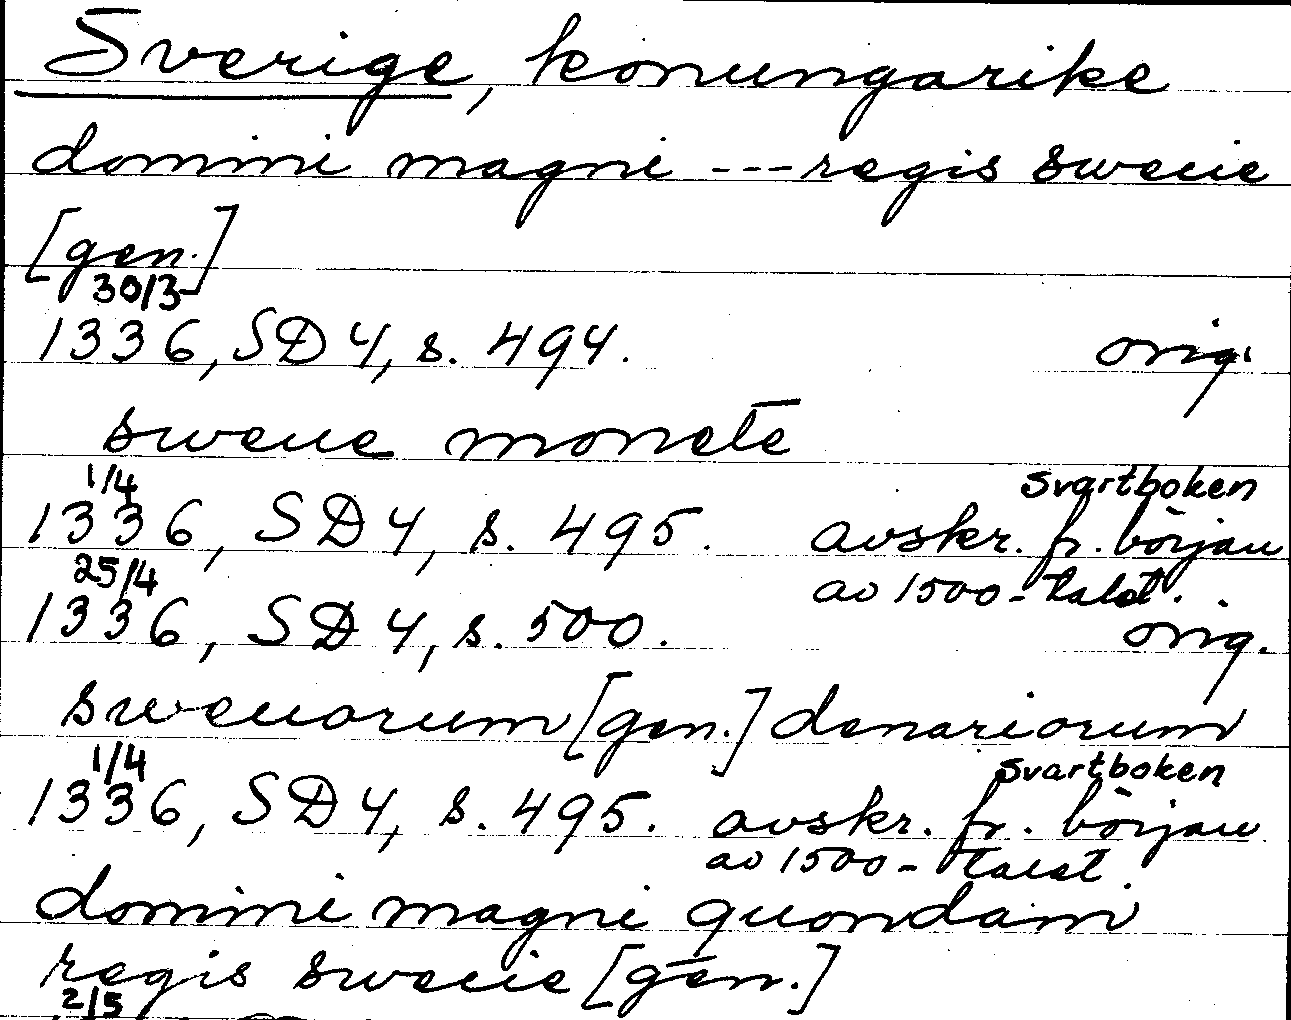 Sverige, konungarike
domini magni --- regis swecie
[gen.]
30/3
1336, SD 4, s. 494. orig.
swecie monete
1/4 Svartboken
1336, SD 4, s. 495. avskr. fr. början
25/4 av 1500-talet.
1336, SD 4, s. 500. orig.
swecorum [gen.] denariorum
1/4 Svartboken
1336, SD 4, s. 495. avskr. fr. början
av 1500-talet.
domini magni quondam
regis swecie [gen.]
2/5